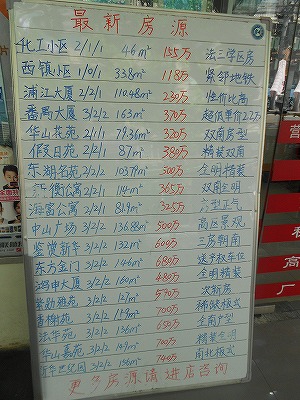 最新房源
化工小区 2/1/1 46m² 155万 法三学区房
西镇小区 1/0/1 33.8m² 118万 紧邻地铁
浦江大厦 2/1/1 110.48m² 230万 性价比高
番禺大厦 3/2/2 163m² 370万 超低单价2.2万
华山花苑 2/1/1 79.36m² 320万 双南房型
假日苑 2/2/1 87m² 380万 精装双南
东湖名苑 2/2/2 103.79m² 500万 全明精装
衡公寓 2/2/1 114m² 365万 双南全明
海富公寓 2/2/1 81.9m² 325万 方型正气
中山广场 3/2/2 136.88m² 500万 高区景观
鉴赏新华 3/2/2 132m² 600万 三房朝南
东方金门 3/2/2 146m² 680万 送产权车位
鸿申大厦 3/2/2 160m² 480万 全明精装
紫勋雅苑 3/2/2 121m² 570万 次新房
香榭苑 3/2/2 159m² 700万 稀缺板式
法华苑 3/2/2 136m² 650万 全南户型
华山嘉苑 3/2/2 147m² 700万 精装全明
新华世纪园 3/2/2 156m² 740万 南北板式
更多房源请进店咨询
营
高
厂